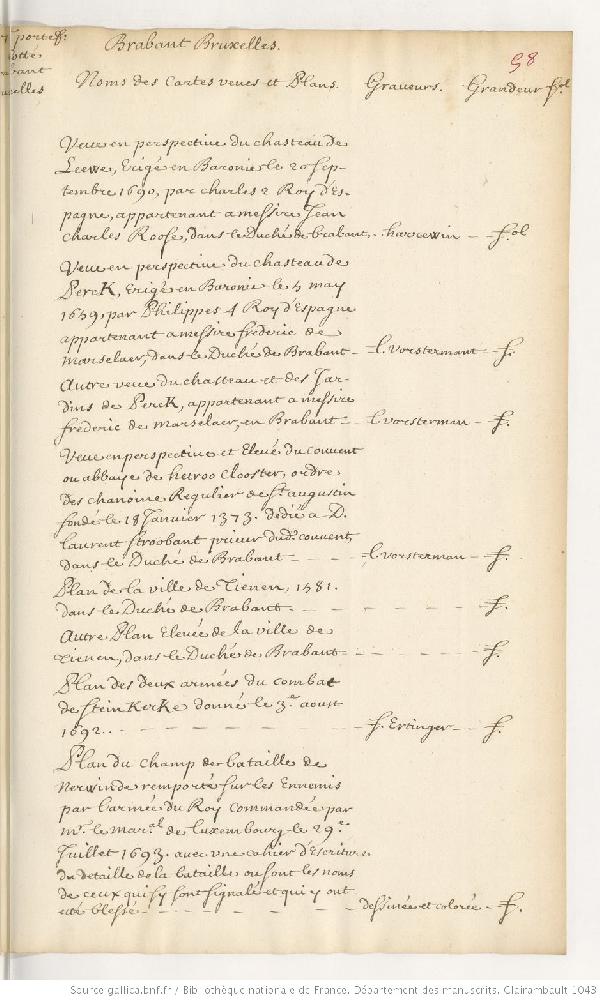 Brabant Bruxelles.
58
Noms des Cartes veues et Plans. Graveurs. Grandeur fol.
Veue en perspective du chasteau de
Leewe, Erigé en Baronie le 20 sep-
tembre 1690, par charles 2 Roy d'Es-
pagne, appartenant a messire Jean
charles Roose, dans le Duché de brabant, - harrewin - fol
Veue en perspective du chasteau de
Perck, Erigé en Baronie le 4 may
1659, par Philippes 4 Roy d'Espagne
appartenant a messire frederic de
marselaer, dans le Duché de Brabant - l. vorstermant - f.
Autre veue du chasteau et des Jar-
dins de Perck, appartenant a messire
frederic de marselaer, en Brabant - l. vorsterman - f.
Veue en perspective et Elevé du couvent
ou abbaye de hetroo clooster, ordre
des chanoine Regulier de St. augustin
fondé le 18 Janvier 1373. dedié a D.
laurent stroobant prieur dud. couvent,
dans le Duché de Brabant - l. vorsterman - f.
Plan de la ville de Tienen, 1581.
dans le Duché de Brabant. - f.
Autre Plan Elevée de la ville de
Tienen, dans le Duché de Brabant - f.
Plan des deux armées du combat
de stein Kerke donné le 3e. aoust
1692. - f. Ertinger - f.
Plan du champ de bataille de
Nerwinde remporté sur les Ennemis
par l'armée du Roy commandée par
mr. le maral. de luxembourg le 29e.
Juillet 1693. avec vne cahier d'Escritures
du detaille de la bataille ou sont les noms
de ceux qui s'y sont signalé et qui y ont
eté blessé - dessinée et colorée - f.
Source gallica.bnf.fr / Bibliothèque nationale de France. Département des manuscrits. Clairambault 1043